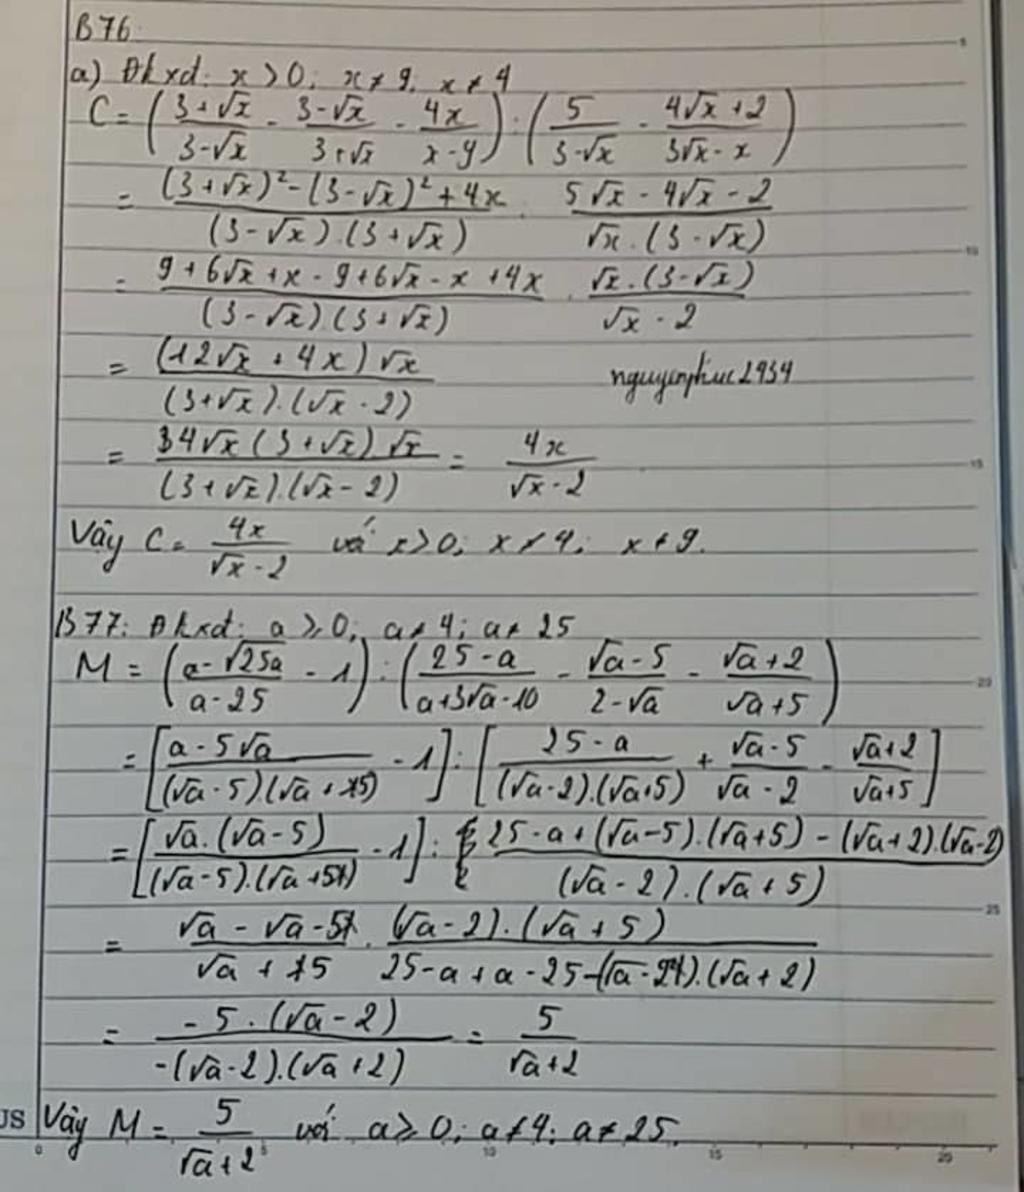 B76.
a) Đkxđ: x > 0; x ≠ 9; x ≠ 4
C = ( (3+√x)/(3-√x) - (3-√x)/(3+√x) - 4x/(x-9) ) : ( 5/(3-√x) - (4√x+2)/(3√x-x) )
= ((3+√x)² - (3-√x)² + 4x)/((3-√x).(3+√x)) : (5√x - 4√x - 2)/(√x.(3-√x))
= (9+6√x+x-9+6√x-x+4x)/((3-√x)(3+√x)) . (√x.(3-√x))/(√x-2)
= ((12√x+4x)√x)/((3+√x).(√x-2))
nguyenphuc2934
= (4√x(3+√x)√x)/((3+√x).(√x-2)) = 4x/(√x-2)
Vậy C = 4x/(√x-2) với x>0; x≠4; x≠9.
B77: Đkxđ: a ≥ 0; a ≠ 4; a ≠ 25
M = ( (a-√25a)/(a-25) - 1 ) : ( (25-a)/(a+3√a-10) - (√a-5)/(2-√a) - (√a+2)/(√a+5) )
= [ (a-5√a)/((√a-5).(√a+5)) - 1 ] : [ (25-a)/((√a-2).(√a+5)) + (√a-5)/(√a-2) - (√a+2)/(√a+5) ]
= [ (√a.(√a-5))/((√a-5).(√a+5)) - 1 ] : (25-a+(√a-5).(√a+5)-(√a+2).(√a-2))/((√a-2).(√a+5))
= (√a-√a-5)/(√a+5) . ((√a-2).(√a+5))/(25-a+a-25-(√a-2).(√a+2))
= (-5.(√a-2))/(-(√a-2).(√a+2)) = 5/(√a+2)
Vậy M = 5/(√a+2) với a ≥ 0; a ≠ 4; a ≠ 25.